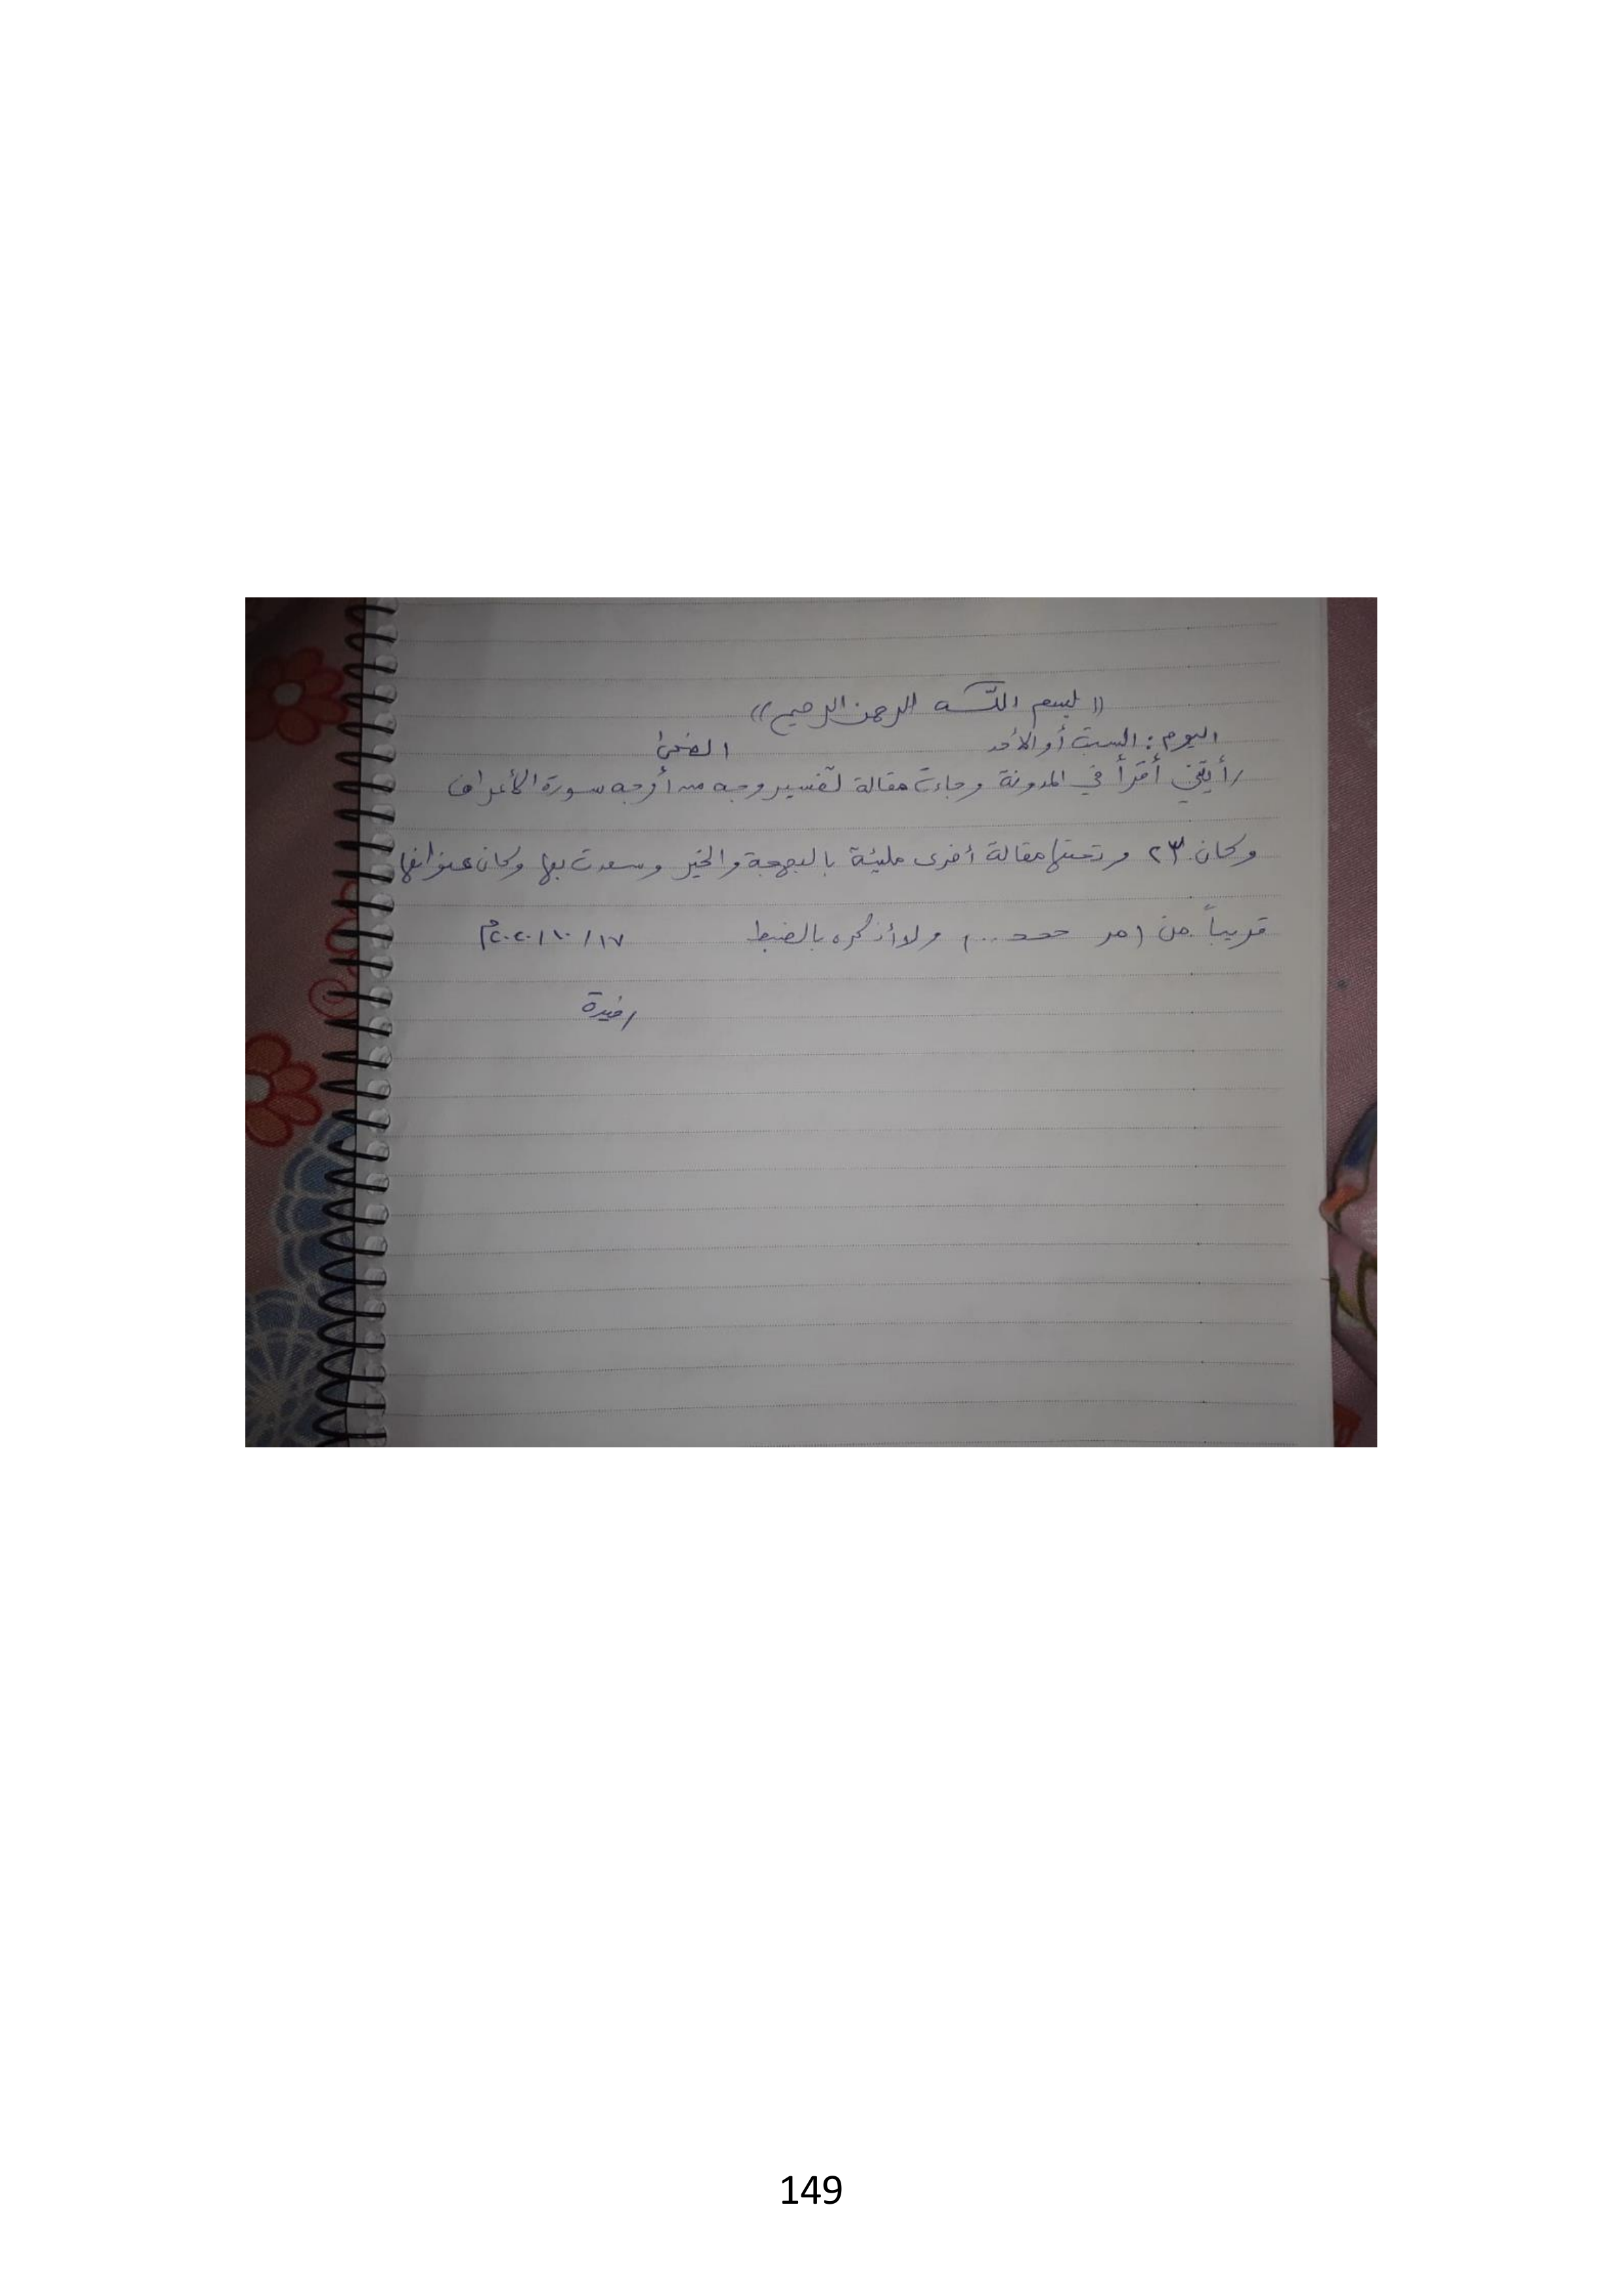 (( بسم الله الرحمن الرحيم ))
اليوم : السبت أو الأحد الضحى
رأيتني أقرأ في المدونة وجاءت مقالة لتفسير وجه من أوجه سورة الأعراف
وكان ٢٣ وتحتها مقالة أخرى مليئة بالبهجة والخير وسعدت بها وكان عنوانها
قريباً من ( ...) ولا أذكره بالضبط ١٧/ ١٠/ ٢٠٢٠م
149